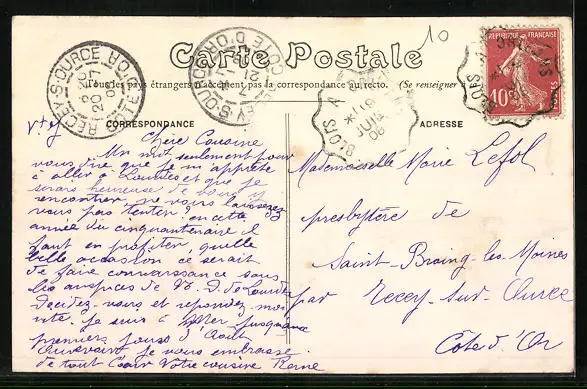 10
Carte Postale
Tous les pays étrangers n'acceptent pas la correspondance au recto.
CORRESPONDANCE
ADRESSE
RÉPUBLIQUE FRANÇAISE
10
RECEY-S-OURCE
COTE D'OR
BLOIS A
19
JUIL
08
Chère Cousine
Un mot seulement pour
vous dire que je m'apprête
à aller à Lourdes et que je
serais heureuse de vous y
rencontrer ne vous laisserez
vous pas tenter? en cette
année du cinquantenaire il
faut en profiter, quelle
belle occasion ce serait
de faire connaissance sous
les auspices de N. D. de Lourdes
Décidez-vous et répondez moi
vite. Je suis à Mer jusqu'aux
premiers jours d'Août
Aurevoir je vous embrasse
de tout Cœur Votre cousine
Mademoiselle Marie Lefol
presbytère de
Saint-Broing-les-Moines
par Recey-sur-Ource
Côte d'Or